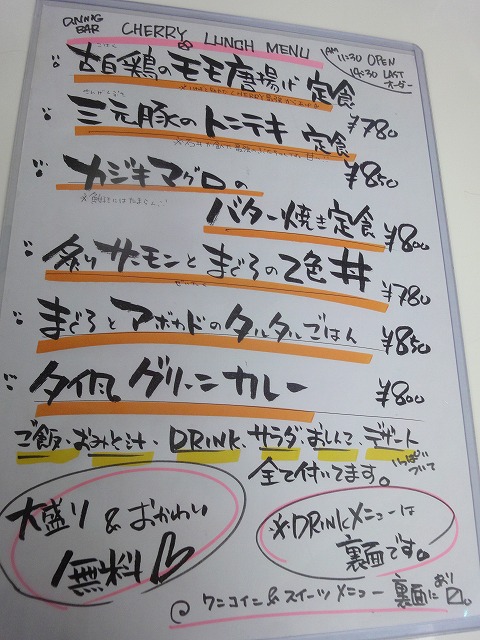 DINING BAR
CHERRY LUNCH MENU
AM 11:30 OPEN
14:30 LAST オーダー
古白鶏のモモ唐揚げ定食
¥780
三元豚のトンテキ定食
¥850
カジキマグロの
バター焼き定食
¥800
炙りサーモンとまぐろの2色丼
¥780
まぐろとアボカドのタルタルごはん
¥850
タイ風グリーンカレー
¥800
ご飯・おみそ汁・DRINK、サラダ・おしんこ・デザート
全て付いてます。
大盛り&おかわり
無料
※DRINKメニューは
裏面です。
ワンコイン&スイーツメニュー 裏面に